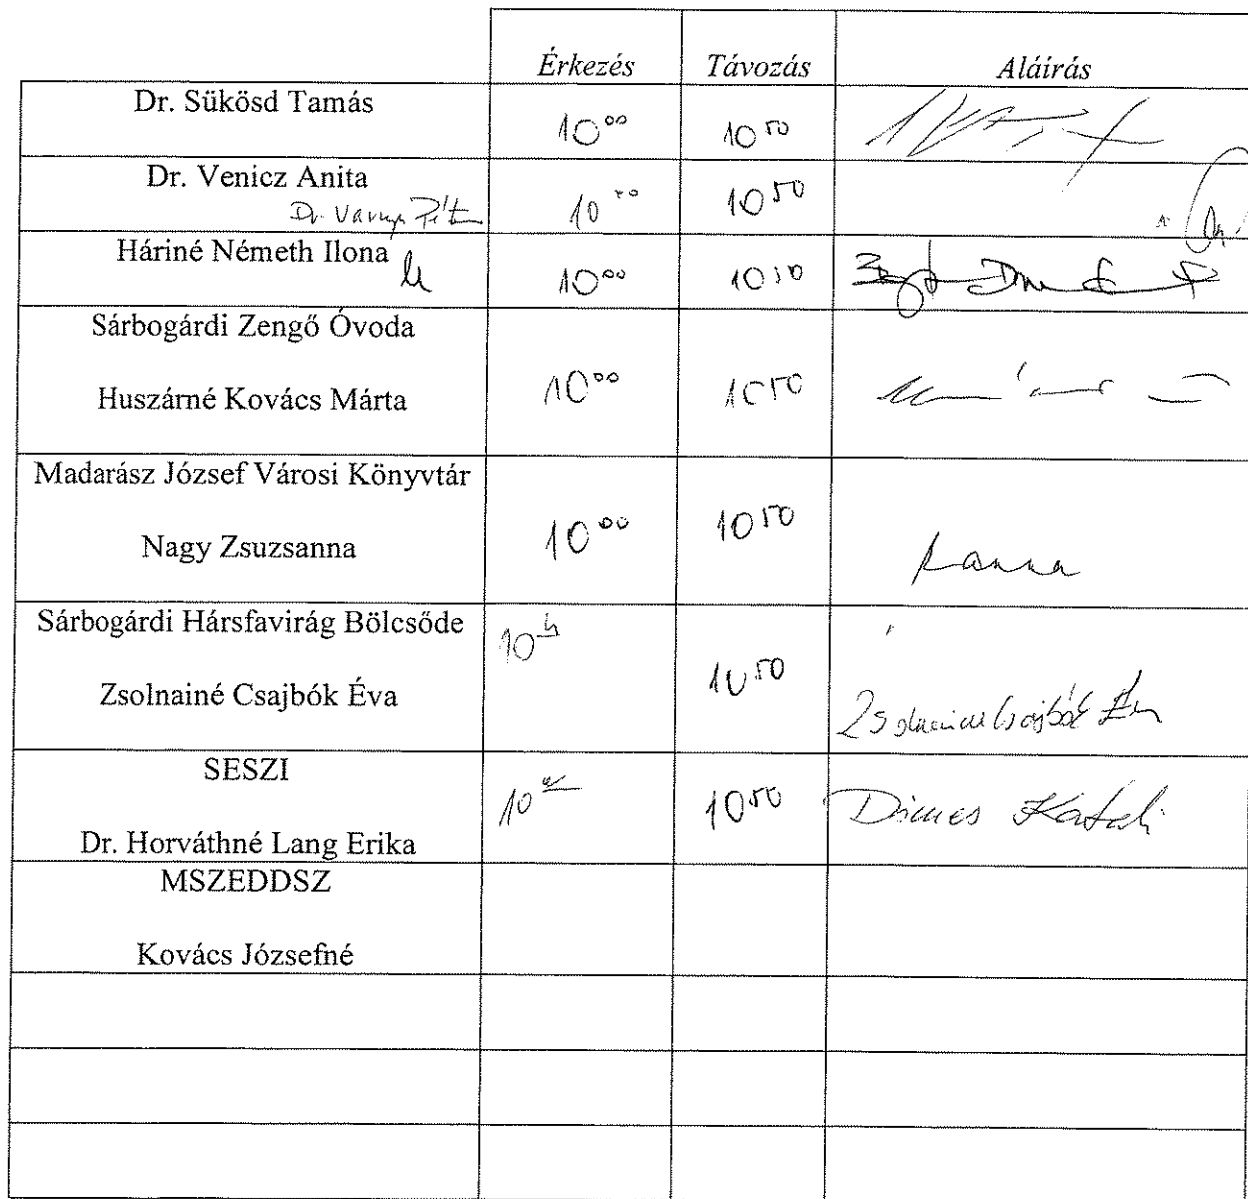 Érkezés Távozás Aláírás
Dr. Sükösd Tamás
10⁰⁰ 10⁵⁰
Dr. Venicz Anita
Dr. 10 10⁵⁰
Háriné Németh Ilona
10⁰⁰
Sárbogárdi Zengő Óvoda
Huszárné Kovács Márta 10⁰⁰ 10⁵⁰
Madarász József Városi Könyvtár
Nagy Zsuzsanna 10⁰⁰ 10⁵⁰
Sárbogárdi Hársfavirág Bölcsőde
10 10⁵⁰
Zsolnainé Csajbók Éva Zsolnainé Csajbók Éva
SESZI
10 10⁵⁰ Dimes Katali
Dr. Horváthné Lang Erika
MSZEDDSZ
Kovács Józsefné